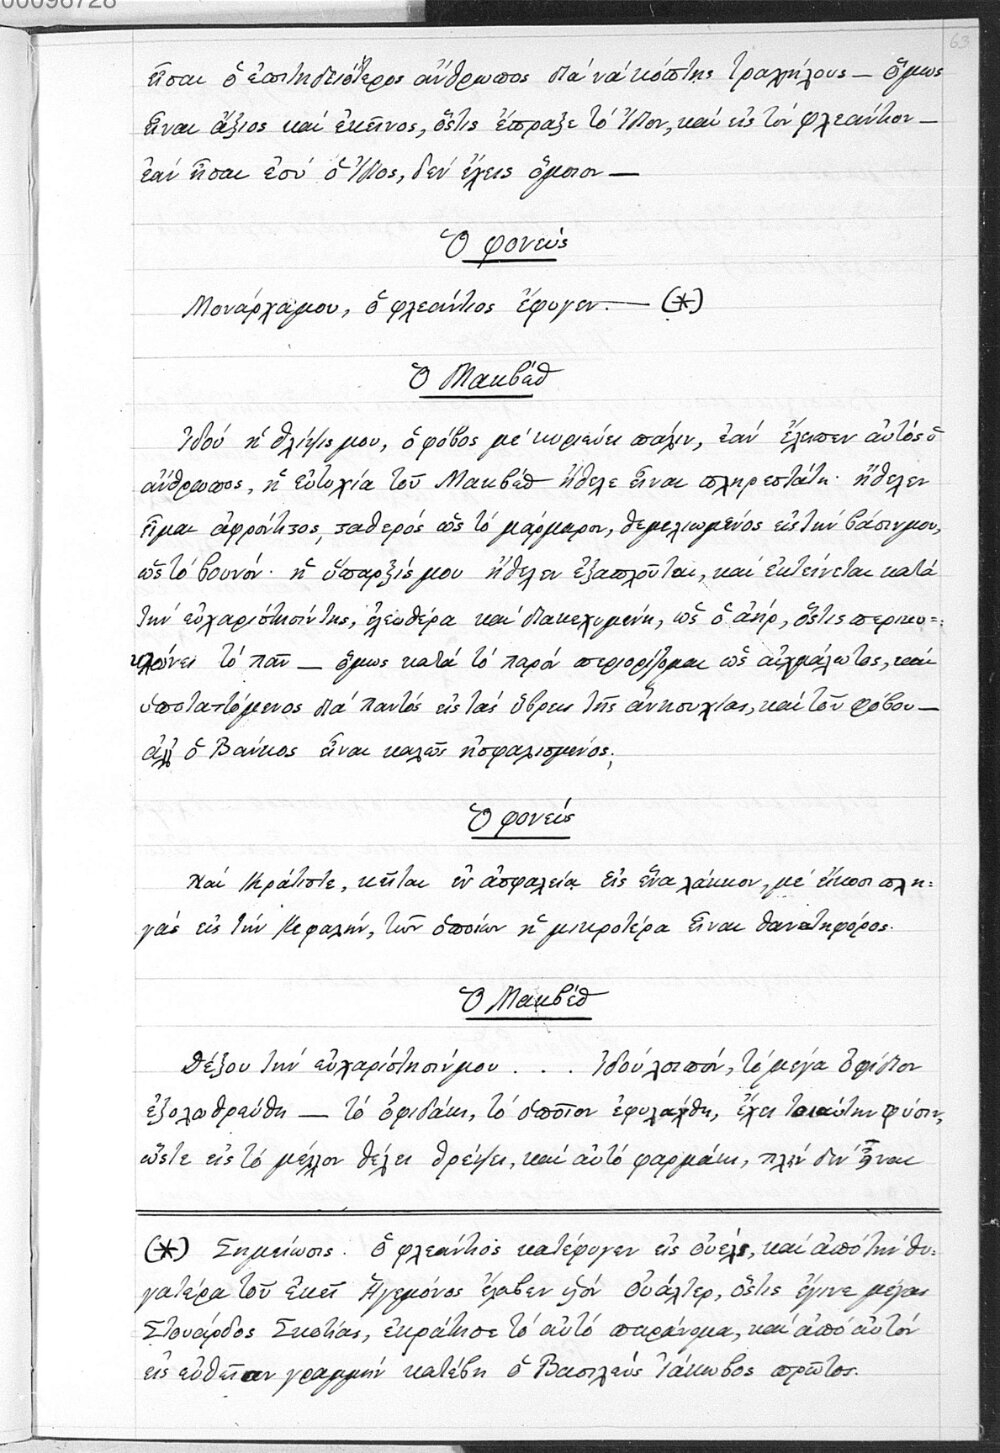 63
εἶσαι ὁ ἐπιτηδειότερος ἄνθρωπος διά νά κόπτης τραχήλους — ὅμως
εἶναι ἄξιος καί ἐκεῖνος, ὅστις ἔπραξε τό ἴδιον, καί εἰς τόν φλεάντιον —
ἐάν εἶσαι ἐσύ ὁ ἴδιος, δέν ἔχεις ὅμοιον —
Ὁ φονεύς
Μονάρχα μου, ὁ φλεάντιος ἔφυγεν. — (*)
Ὁ Μακβέθ
Ἰδού ἡ θλίψις μου, ὁ φόβος μέ κυριεύει πάλιν, ἐάν ἔλειπεν αὐτός ὁ
ἄνθρωπος, ἡ εὐτυχία τοῦ Μακβέθ ἤθελε εἶναι πληρεστάτη· ἤθελεν
εἶμαι ἀφρόντιστος, σταθερός ὡς τό μάρμαρον, θεμελιωμένος εἰς τήν βάσιν μου,
ὡς τό βουνόν· ἡ ὕπαρξίς μου ἤθελεν ἐξαπλοῦται, καί ἐκτείνεται κατά
τήν εὐχαρίστησίν της, ἐλευθέρα καί διακεχυμένη, ὡς ὁ ἀήρ, ὅστις περικυ=
κλώνει τό πᾶν — ὅμως κατά τό παρόν περιορίζομαι ὡς αἰχμάλωτος, καί
ὑποταττόμενος διά παντός εἰς τάς ὕβρεις τῆς ἀνησυχίας, καί τοῦ φόβου —
ἀλλ' ὁ Βάνκος εἶναι καλῶς ἠσφαλισμένος;
Ὁ φονεύς
Ναί Κράτιστε, κεῖται ἐν ἀσφαλεία εἰς ἕνα λάκκον, μέ εἴκοσι πλη=
γάς εἰς τήν κεφαλήν, τῶν ὁποίων ἡ μικροτέρα εἶναι θανατηφόρος.
Ὁ Μακβέθ
Δέξου τήν εὐχαρίστησίν μου . . . Ἰδού λοιπόν, τό μέγα ὀφίδιον
ἐξολωθρεύθη — τό ὀφιδάκι, τό ὁποῖον ἐφυλάχθη, ἔχει τοιαύτην φύσιν,
ὥστε εἰς τό μέλλον θέλει θρέψει, καί αὐτό φαρμάκι, πλήν δέν εἶναι
(*) Σημείωσις. Ὁ φλεάντιος κατέφυγεν εἰς Οὐέλς, καί ἀπό τήν θυ=
γατέρα τοῦ ἐκεῖ Ἡγεμόνος ἔλαβεν υἱόν Οὐάλτερ, ὅστις ἔγινε μέγας
Στουάρδος Σκοτίας, ἐκράτησε τό αὐτό παράνομα, καί ἀπό αὐτόν
εἰς εὐθεῖαν γραμμήν κατέβη ὁ Βασιλεύς Ἰάκωβος πρῶτος.